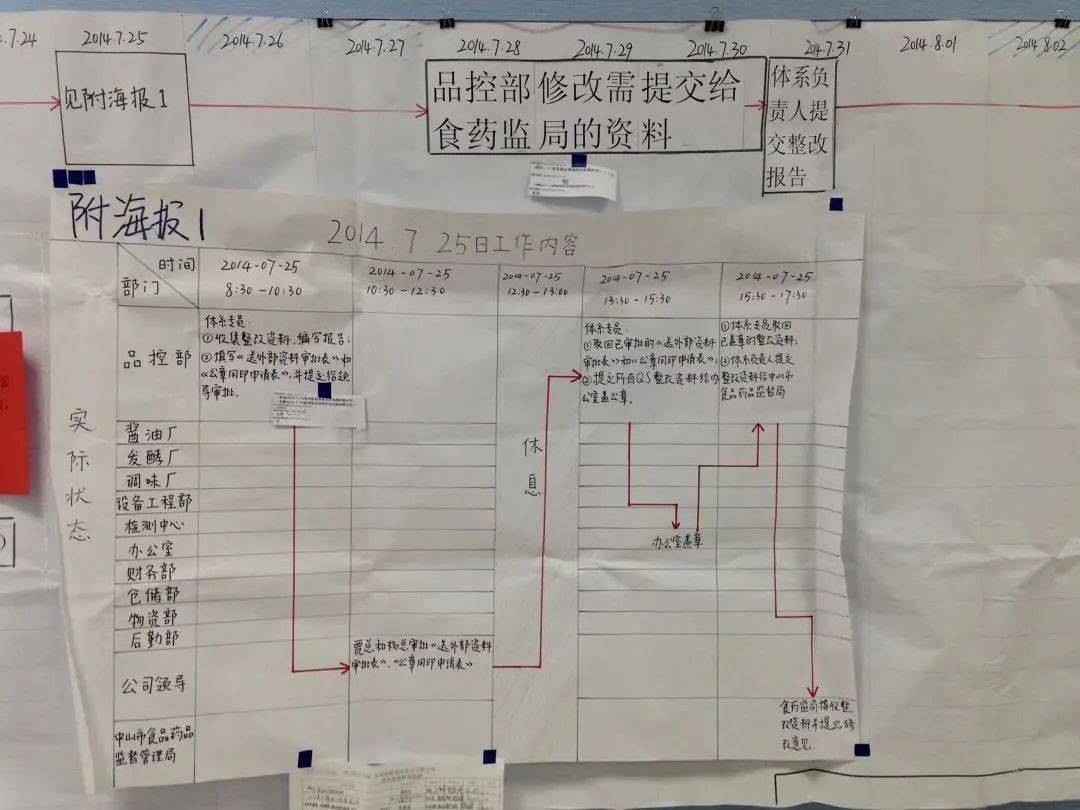 .7.24
2014.7.25
2014.7.26
2014.7.27
2014.7.28
2014.7.29
2014.7.30
2014.7.31
2014.8.01
2014.8.02
见附海报1
品控部修改需提交给
食药监局的资料
体系负
责人提
交整改
报告
附海报1
2014.7.25日工作内容
时间
部门
2014-07-25
8:30-10:30
2014-07-25
10:30-12:30
2014-07-25
12:30-13:00
2014-07-25
13:30-15:30
2014-07-25
15:30-17:30
实际状态
品控部
体系专员:
①收集整改资料,编写报告;
②填写《送外部资料审批表》和
《公章用印申请表》,并提交给领
导审批.
体系专员:
①取回已审批的《送外部资料
审批表》和《公章用印申请表》;
②提交所有QS整改资料给办
公室盖公章.
①体系专员取回
已盖章的整改资料;
②体系负责人提交
整改资料给中山市
食品药品监督局
酱油厂
发酵厂
调味厂
设备工程部
检测中心
办公室
财务部
仓储部
物资部
后勤部
公司领导
中山市食品药品
监督管理局
休息
办公室盖章
贾总和杨总审批《送外部资料
审批表》,《公章用印申请表》
食药监局接收整
改资料并提出修
改意见.